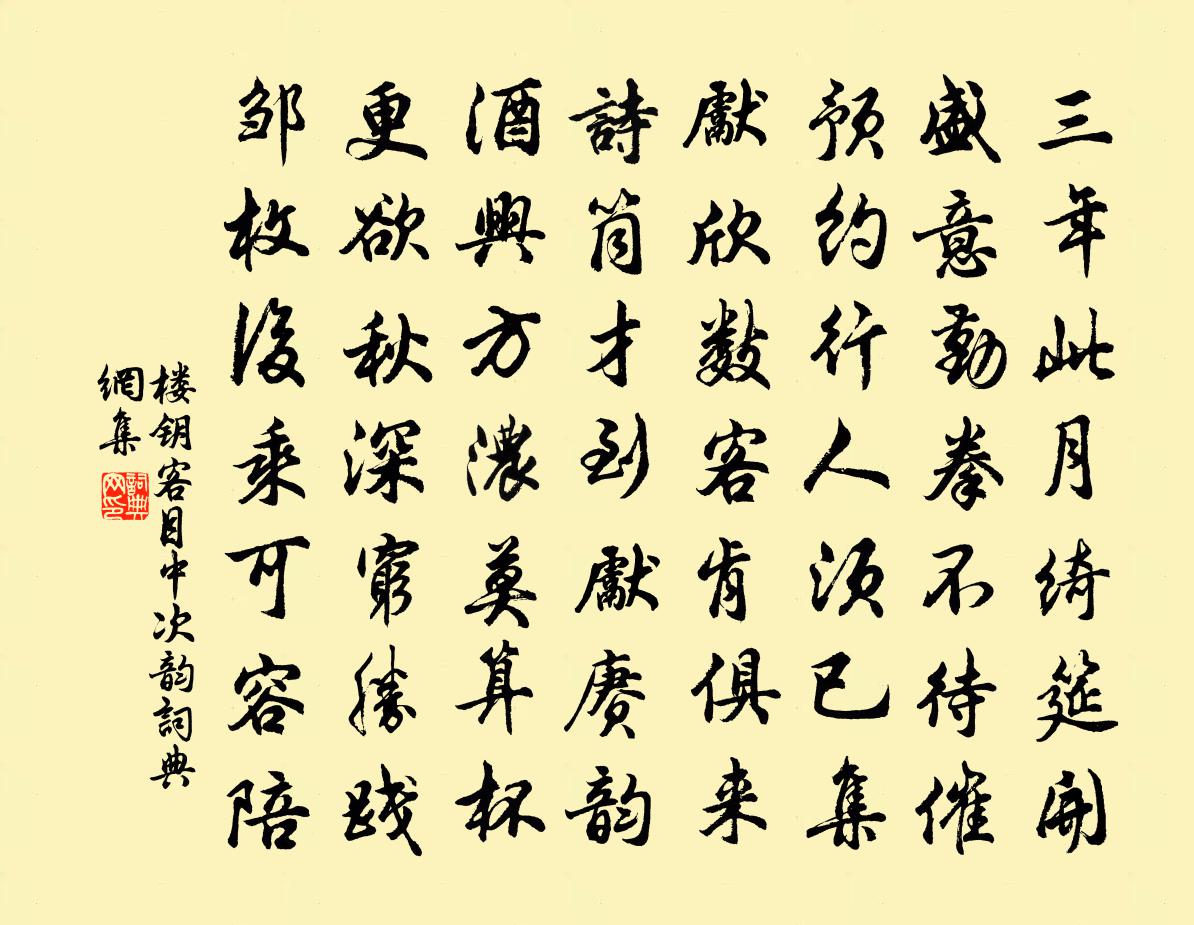 三年此月綺筵開
盛意勤拳不待催
預約行人須已集
獻欣數客肯俱来
詩筒才到獻赓韵
酒興方濃莫算杯
更欲秋深窮勝踐
邹枚後乘可容陪
楼钥客目中次韵詞典
網集
詞典網印